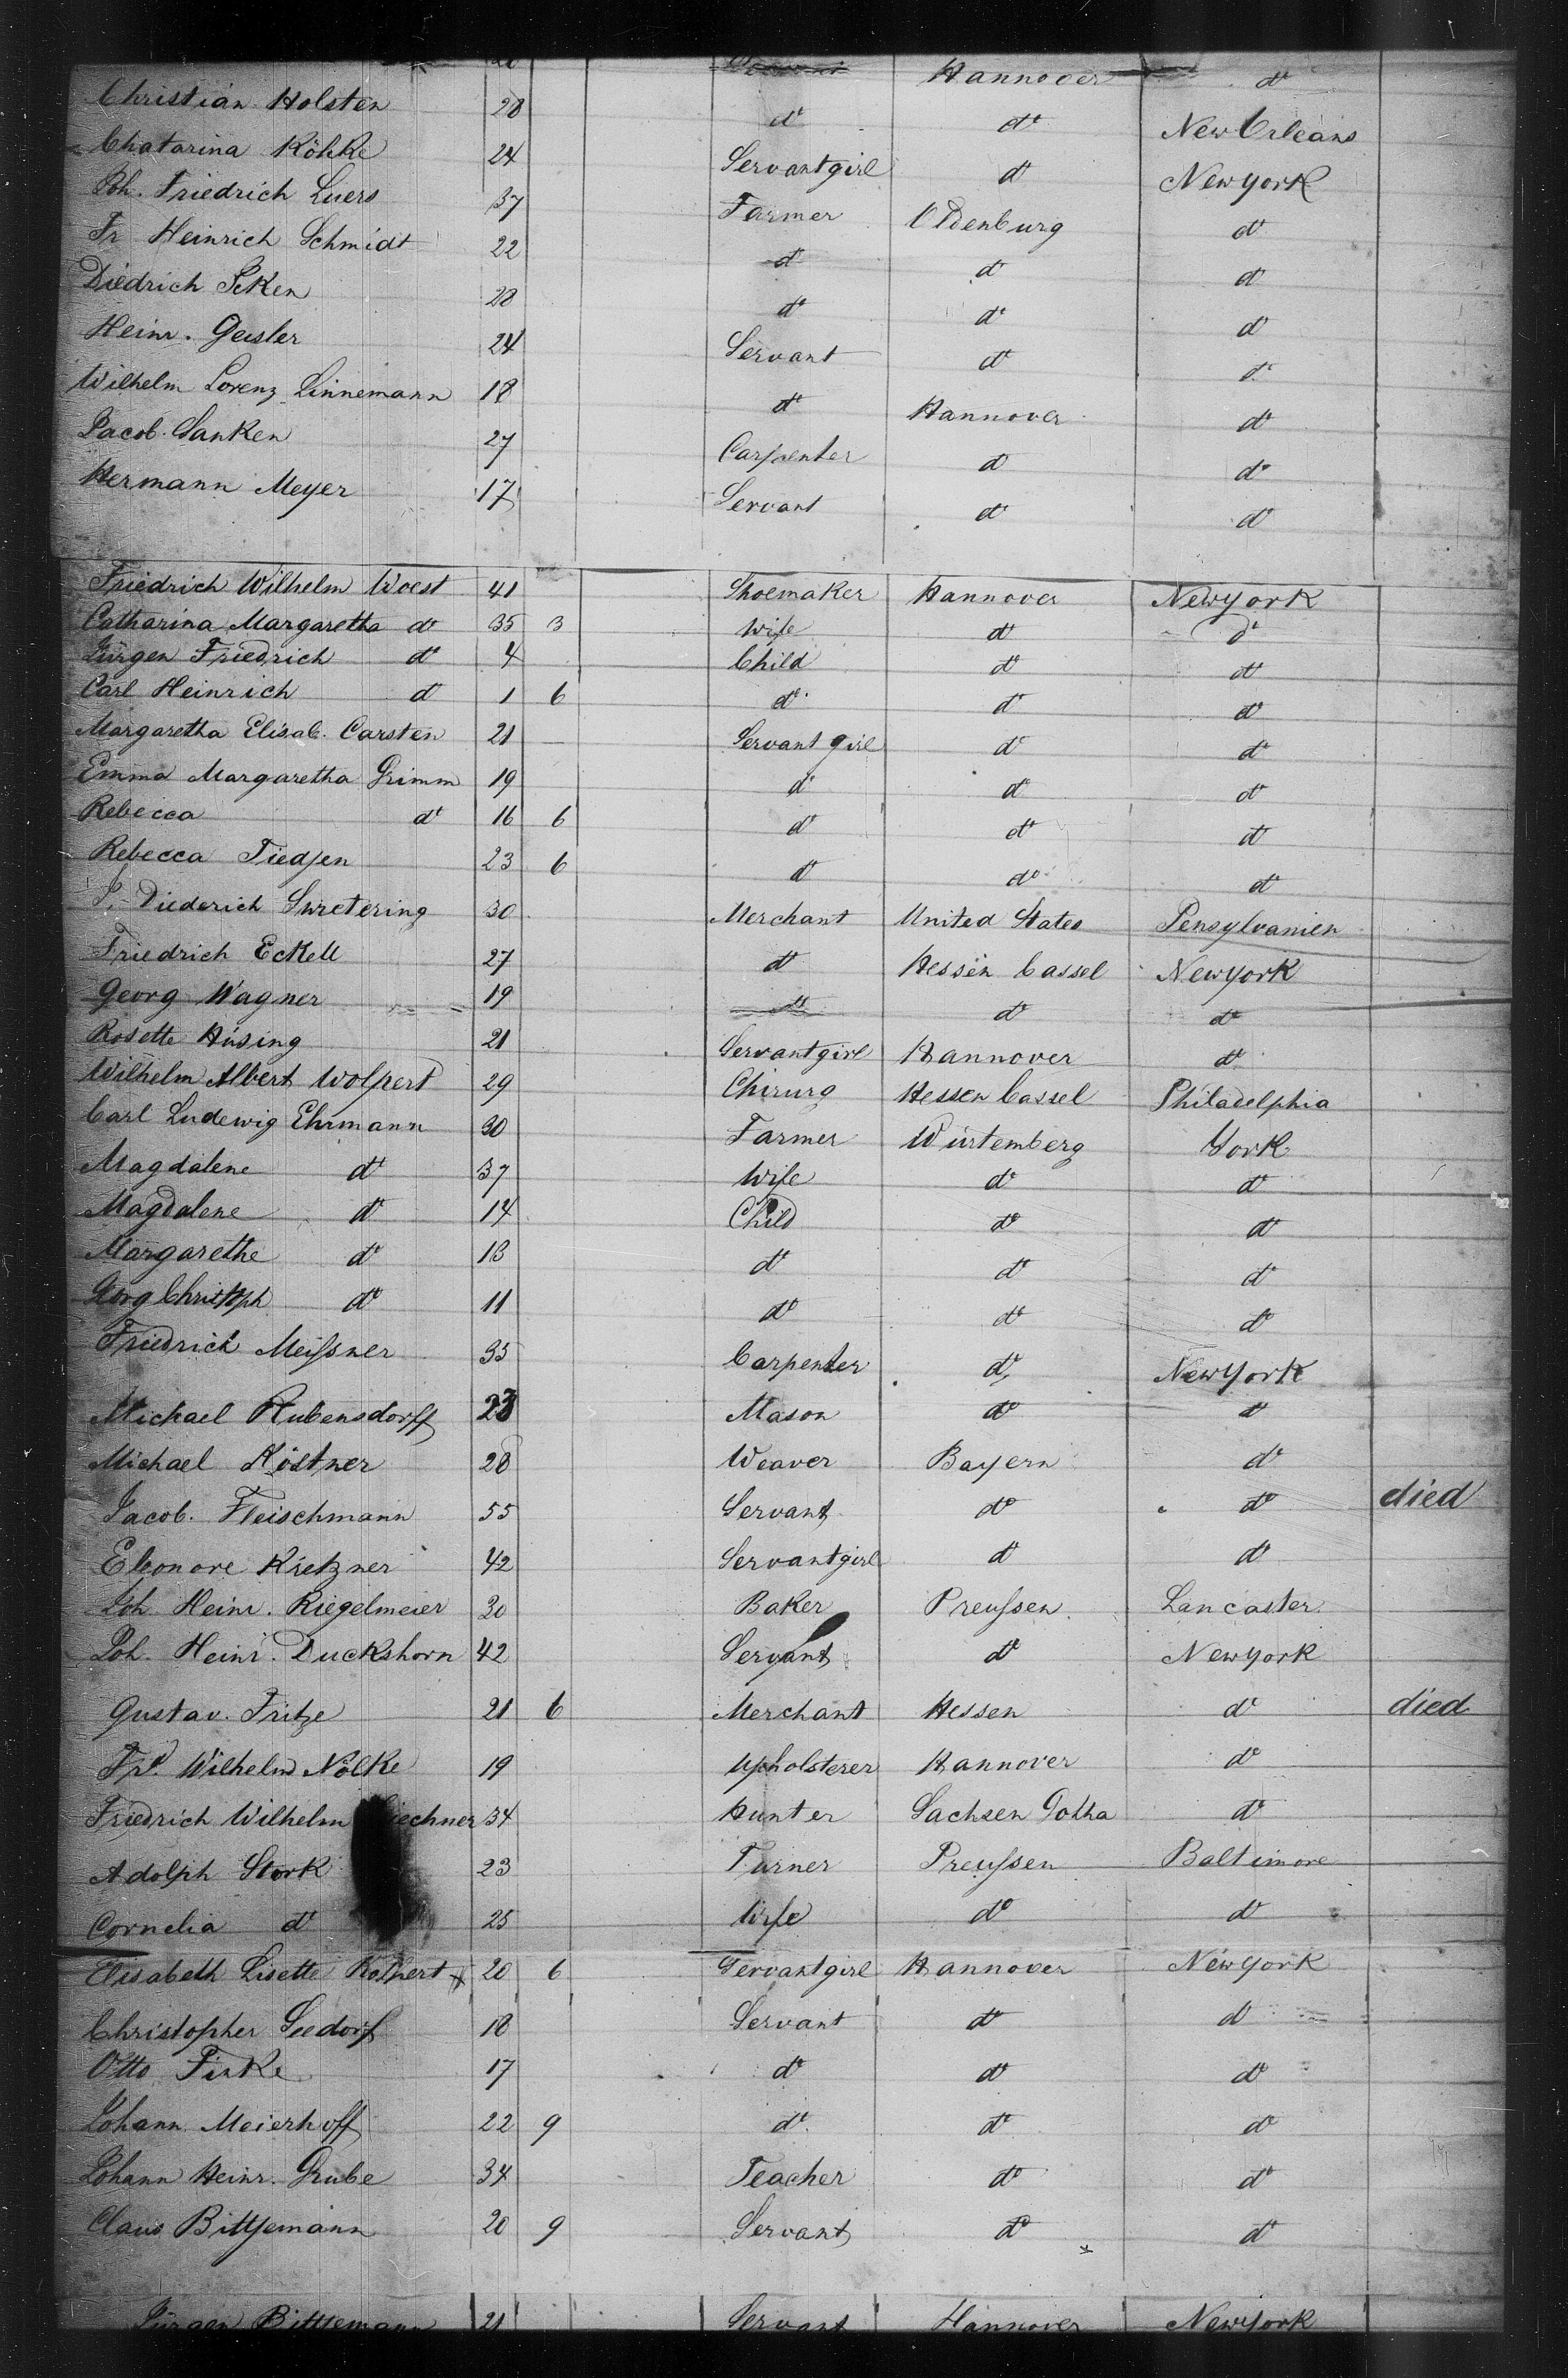 Hannover d°
Christian Holsten 28 d° d° New Orleans
Chatarina Köhke 24 Servantgirl d° Newyork
Joh. Friedrich Luers 37 Farmer Oldenburg d°
Fr Heinrich Schmidt 22 d° d° d°
Diedrich Icken 28 d° d° d°
Heinr. Geisler 24 Servant d° d°
Wilhelm Lorenz Linnemann 18 d° Hannover d°
Jacob Janken 27 Carpenter d° d°
Hermann Meyer 17 Servant d° d°
Friedrich Wilhelm Woest 41 Shoemaker Hannover Newyork
Catharina Margaretha d° 35 3 Wife d° d°
Jürgen Friedrich d° 4 Child d° d°
Carl Heinrich d° 1 6 d° d° d°
Margaretha Elisab. Carsten 21 — Servant girl d° d°
Emma Margaretha Grimm 19 d° d° d°
Rebecca d° 16 6 d° d° d°
Rebecca Tiedjen 23 6 d° d° d°
J. Diederich Swretering 30 Merchant United States Pensylvanien
Friedrich Eckell 27 d° Hessen Cassel Newyork
Georg Wagner 19 d° d° d°
Rosette Hüsing 21 Servantgirl Hannover d°
Wilhelm Albert Wolpert 29 Chirurg Hessen Cassel Philadelphia
Carl Ludewig Ehrmann 30 Farmer Würtemberg York
Magdalene d° 37 Wife d° d°
Magdalene d° 14 Child d° d°
Margarethe d° 13 d° d° d°
Georg Christoph d° 11 d° d° d°
Friedrich Meissner 35 Carpenter d° Newyork
Michael Rubensdorff 23 Mason d° d°
Michael Köstner 28 Weaver Bayern d°
Jacob. Fleischmann 55 Servant d° d° died
Eleonore Kietzner 42 Servantgirl d° d°
Joh. Heinr. Riegelmeier 30 Baker Preussen Lancaster
Joh. Heinr. Duckshorn 42 Servant d° Newyork
Gustav. Fritze 21 6 Merchant Hessen d° died
Frd. Wilhelm Nölke 19 Upholsterer Hannover d°
Friedrich Wilhelm 34 Hunter Sachsen Gotha d°
Adolph Stork 23 Turner Preussen Baltimore
Cornelia d° 25 Wife d° d°
Elisabeth Lisette Kolpert 20 6 Servantgirl Hannover Newyork
Christopher Seedorf 18 Servant d° d°
Otto Finke 17 d° d° d°
Johann Meierhoff 22 9 d° d° d°
Johann Heinr. Grube 34 Teacher d° d°
Claus Bittjemann 20 9 Servant d° d°
Jürgen Bittjemann 21 Servant Hannover Newyork